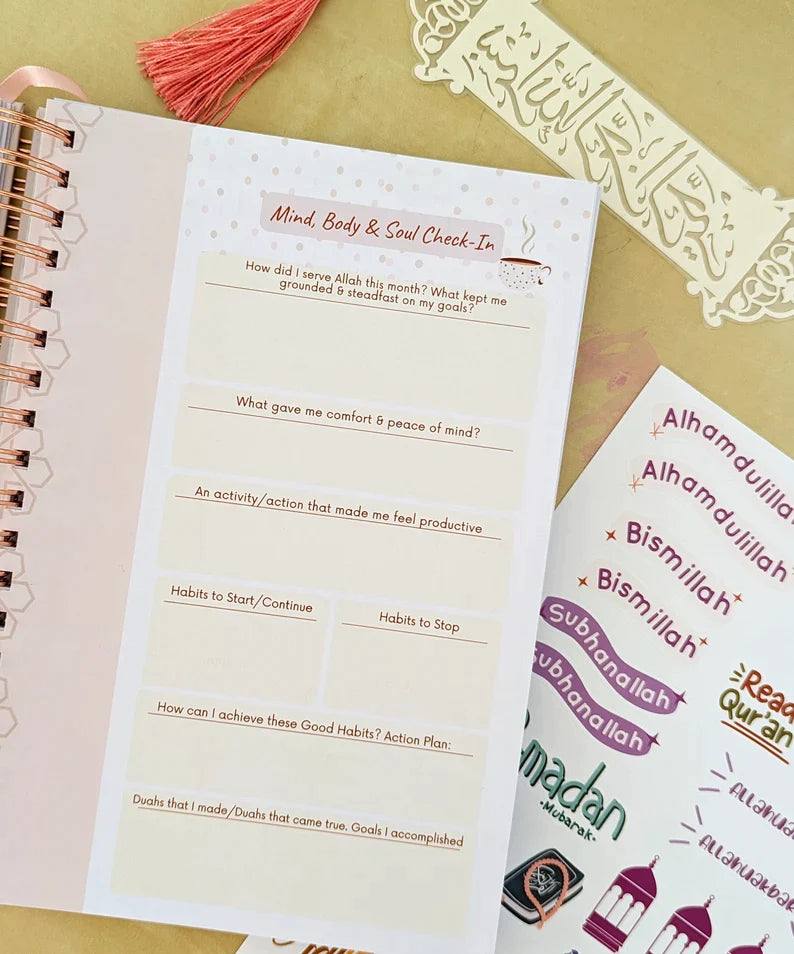 Mind, Body & Soul Check-In
How did I serve Allah this month? What kept me
grounded & steadfast on my goals?
What gave me comfort & peace of mind?
An activity/action that made me feel productive
Habits to Start/Continue
Habits to Stop
How can I achieve these Good Habits? Action Plan:
Duahs that I made/Duahs that came true. Goals I accomplished
Alhamdulillah
Alhamdulillah
Bismillah
Bismillah
Subhanallah
Subhanallah
Read
Qur'an
madan
•Mubarak•
Allahuak
Allahuakba